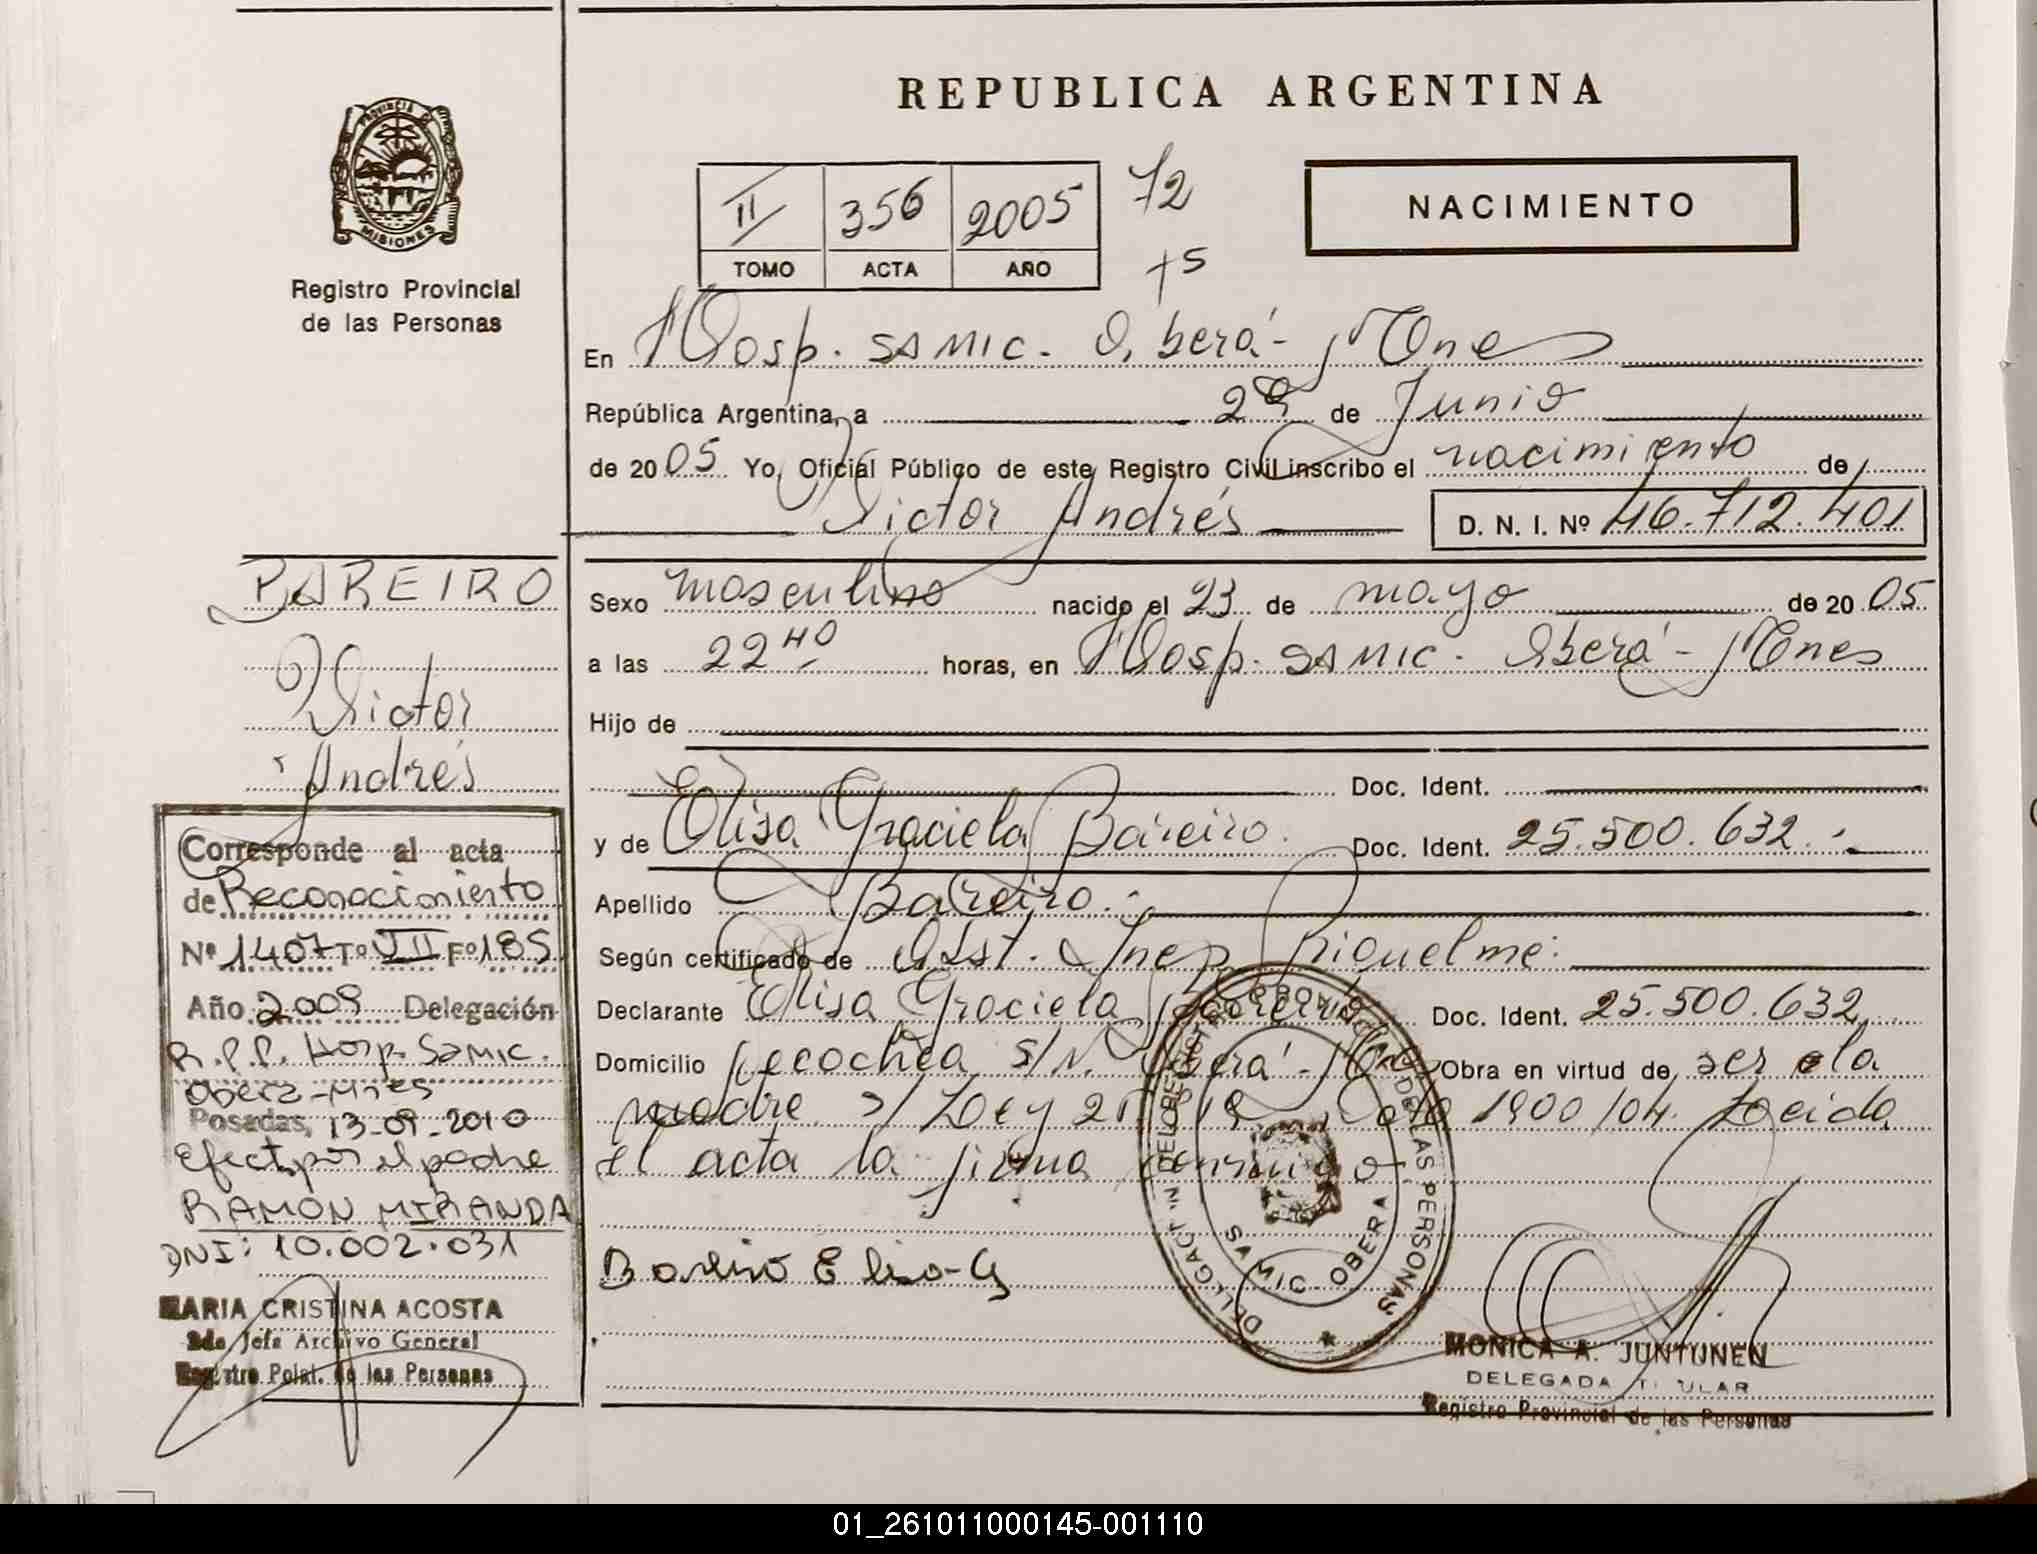 REPUBLICA ARGENTINA
PROVINCIA DE
MISIONES
Registro Provincial
de las Personas
II 356 2005 72
TOMO ACTA AÑO +5
NACIMIENTO
En Hosp. SAMIC. Oberá - Mnes
República Argentina, a 29 de Junio
de 20 05 Yo, Oficial Público de este Registro Civil inscribo el nacimiento de
Victor Andrés D. N. I. Nº 46.712.401
BAREIRO
Victor
Andrés
Sexo masculino nacido el 23 de mayo de 20 05
a las 22 40 horas, en Hosp. SAMIC. Oberá - Mnes
Hijo de
Doc. Ident.
y de Elisa Graciela Bareiro. Doc. Ident. 25.500.632.
Apellido Bareiro.
Según certificado de Obst. Ines Riquelme.
Declarante Elisa Graciela Bareiro Doc. Ident. 25.500.632
Domicilio Necochea s/N. Oberá - Mnes Obra en virtud de ser la
madre. s/ Ley 1900/04. Leida
el acta la firma conmigo
Bareiro Elisa G
Corresponde al acta
de Reconocimiento
Nº 1407 Tº VII Fº 185
Año 2009 Delegación
R.P.P. Hosp. SAMIC.
Oberá - Mnes
Posadas, 13-09-2010
Efect. por el padre
RAMON MIRANDA
DNI: 10.002.031
MARIA CRISTINA ACOSTA
2da Jefa Archivo General
Registro Pcial. de las Personas
REGISTRO PROVINCIAL DE LAS PERSONAS
SAMIC OBERA
MONICA A. JUNTUNEN
DELEGADA TITULAR
Registro Provincial de las Personas
01_261011000145-001110